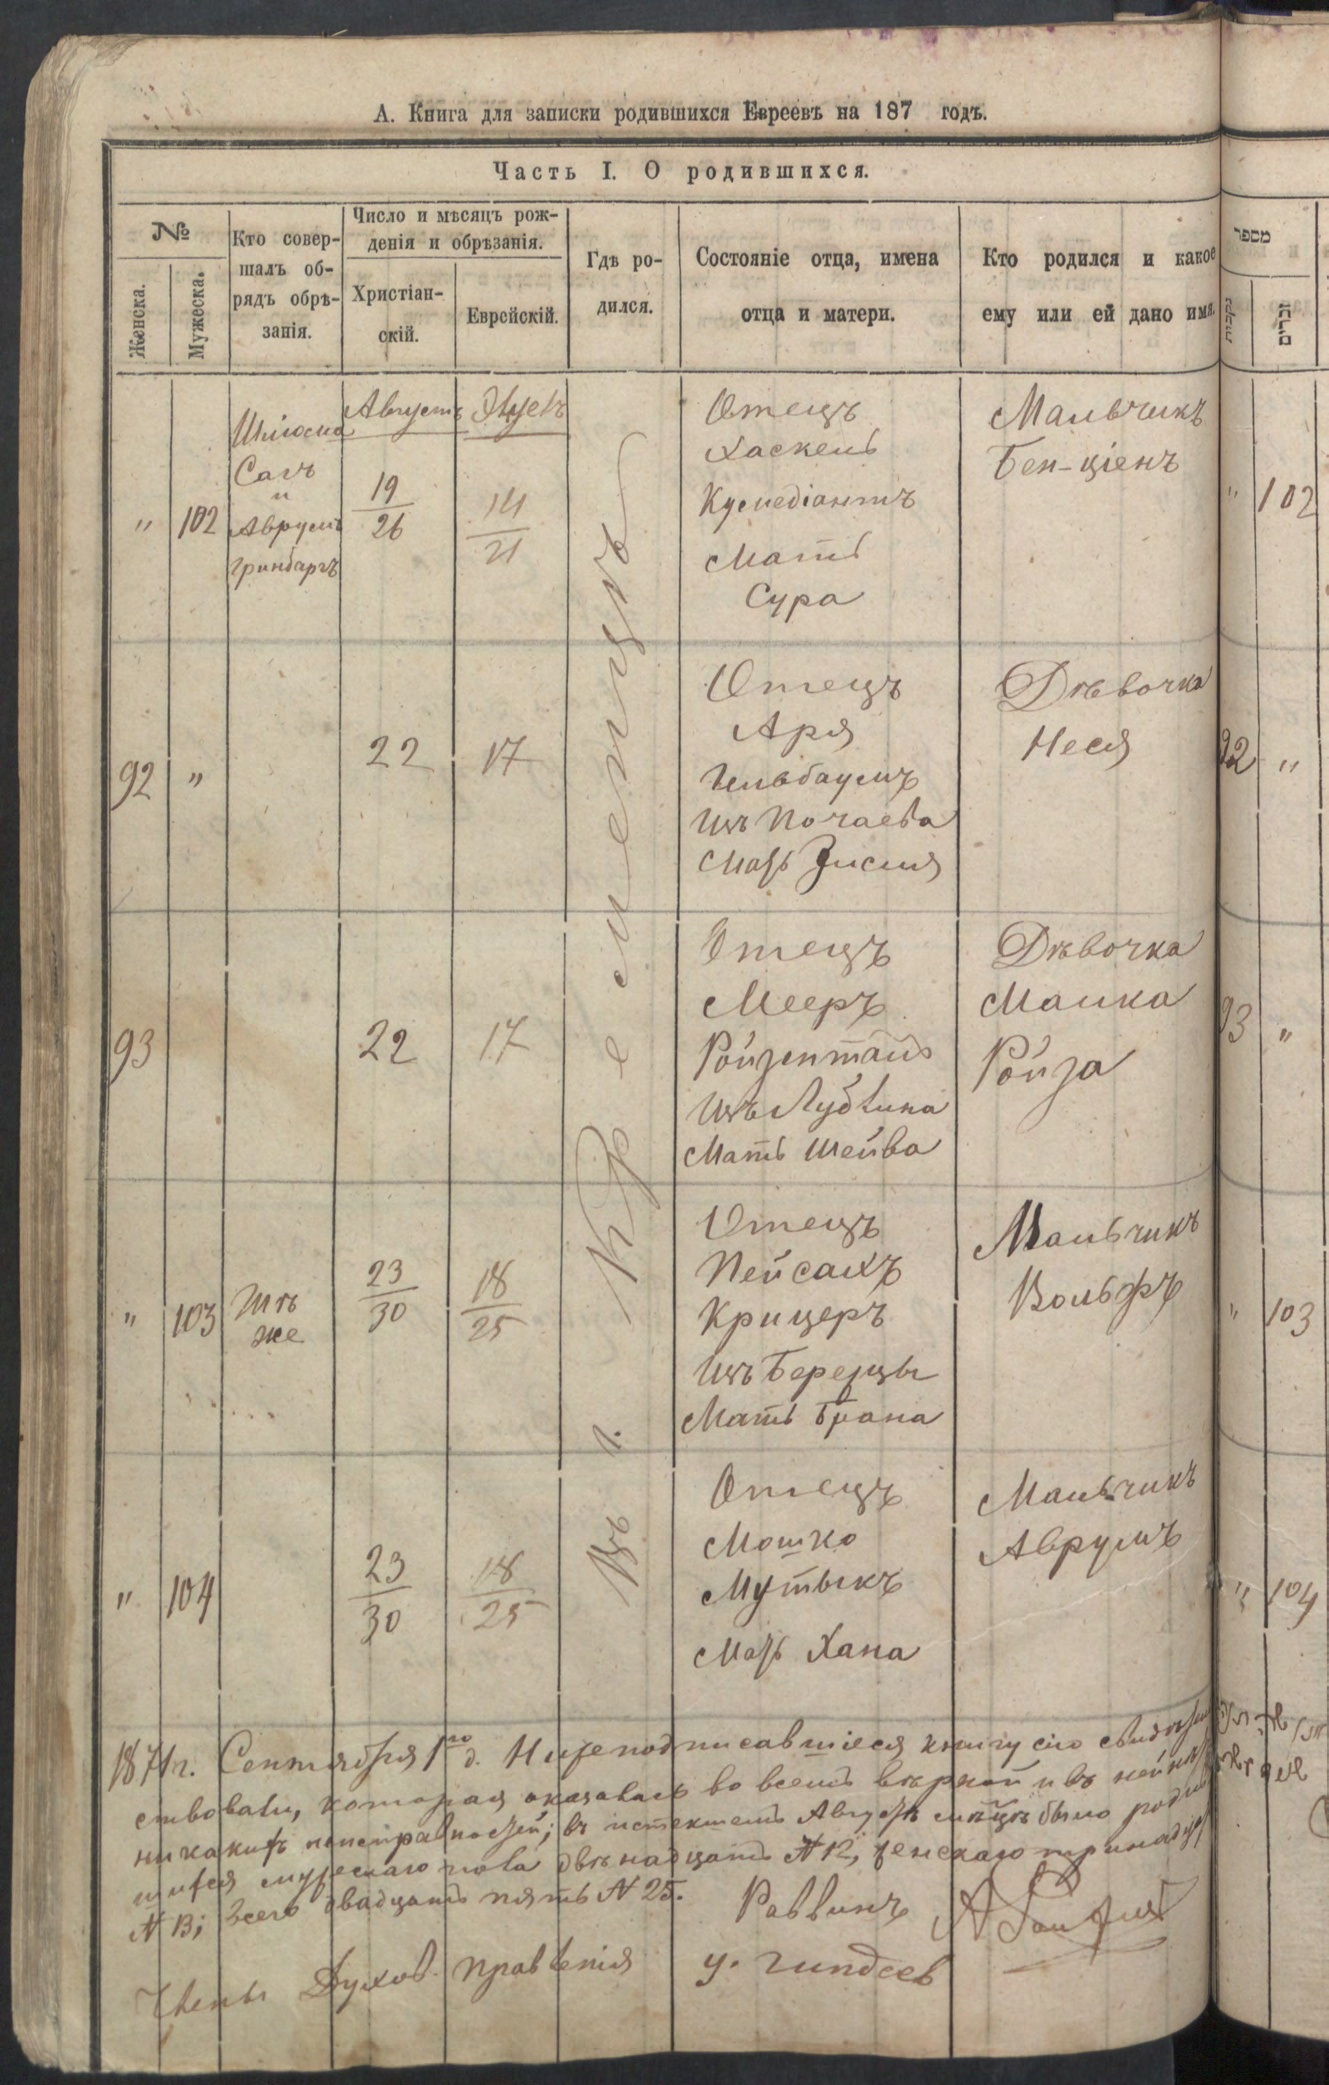 А. Книга для записки родившихся Евреевъ на 187 годъ.
Часть I. О родившихся.
№
Женска.
Мужеска.
Кто совер-
шалъ об-
рядъ обрѣ-
занія.
Число и мѣсяцъ рож-
денія и обрѣзанія.
Христіан-
скій.
Еврейскій.
Гдѣ ро-
дился.
Состояніе отца, имена
отца и матери.
Кто родился и какое
ему или ей дано имя.
מספר
נקבות
זכרים
Въ г. Кременцѣ
" 102
Шлiома
Сасъ
и
Аврумъ
Гринбаргъ
Августъ
19
26
Элуель
14
21
Отецъ
Хаскель
Кумедіантъ
Мать
Сура
Мальчикъ
Бен-ціенъ
" 102
92 "
22
17
Отецъ
Аря
Изъ Почаева
Мать Зисля
Дѣвочка
Неся
92 "
93
22
17
Отецъ
Мееръ
Ройзенталь
Изъ Люблина
Мать Шейва
Дѣвочка
Малка
Ройза
93 "
" 103
Тѣ
же
23
30
18
25
Отецъ
Пейсахъ
Крицеръ
Изъ Березцы
Мать Брана
Мальчикъ
Вольфъ
" 103
" 104
23
30
18
25
Отецъ
Мошко
Мутыкъ
Мать Хана
Мальчикъ
Аврумъ
" 104
1871 г. Сентября 1го д. Нижеподписавшіеся книгу сію свидѣтель
ствовали, которая оказалась во всемъ вѣрной и въ ней
никакихъ неисправностей; въ истекшемъ Августѣ мѣсяцѣ было родив
шихся мужескаго пола двѣнадцать № 12, женскаго тринадцать
№ 13; Всего двадцать пять № 25. Раввинъ
Члены Духов. Правленія